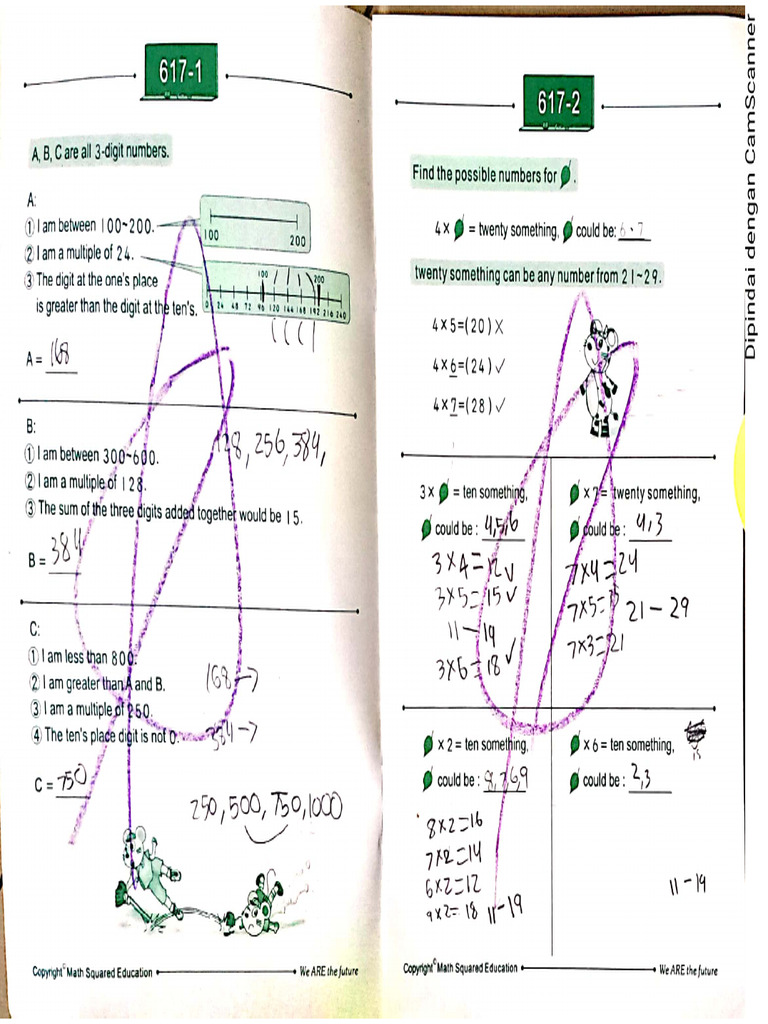 617-1
A, B, C are all 3-digit numbers.
A:
① I am between 100~200.
100 200
② I am a multiple of 24.
③ The digit at the one's place
is greater than the digit at the ten's.
100 200
0 24 48 72 96 120 144 168 192 216 240
A = 168
B:
① I am between 300~600.
128, 256, 384,
② I am a multiple of 128.
③ The sum of the three digits added together would be 15.
B = 384
C:
① I am less than 800.
② I am greater than A and B.
168 →
③ I am a multiple of 250.
④ The ten's place digit is not 0.
384 →
C = 750
250, 500, 750, 1000
Copyright© Math Squared Education
We ARE the future
617-2
Find the possible numbers for
4 × = twenty something, could be: 6 · 7
twenty something can be any number from 21~29.
4×5=(20) ×
4×6=(24) ✓
4×7=(28) ✓
3 × = ten something,
could be : 4,5,6
3×4=12 ✓
3×5=15 ✓
11 - 19
3×6=18 ✓
× 7 = twenty something,
could be : 4,3
7×4=24
7×5=
21 - 29
7×3=21
× 2 = ten something,
could be : 8,7,6,9
8×2=16
7×2=14
6×2=12
9×2=18 11-19
× 6 = ten something,
could be : 2,3
11-19
Copyright© Math Squared Education
We ARE the future
Dipindai dengan CamScanner